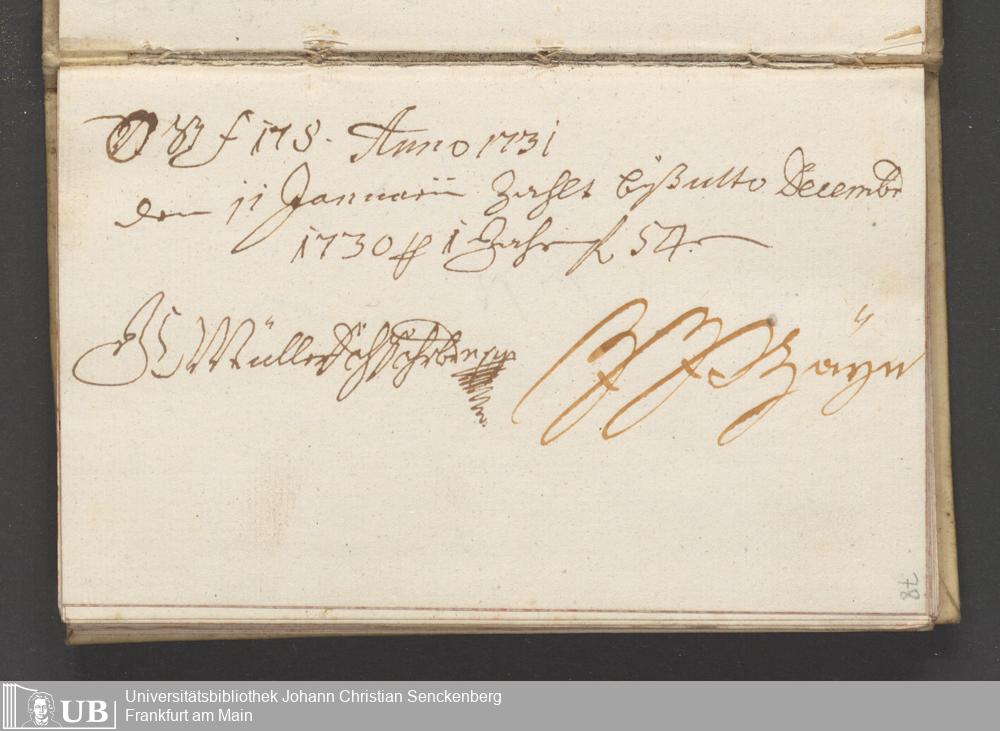 f 178. Anno 1731
den 11 Januarii Zahlt biß ulto Decembr
1730 1 Jahr fl 54.
Müller
78
UB
Universitätsbibliothek Johann Christian Senckenberg
Frankfurt am Main